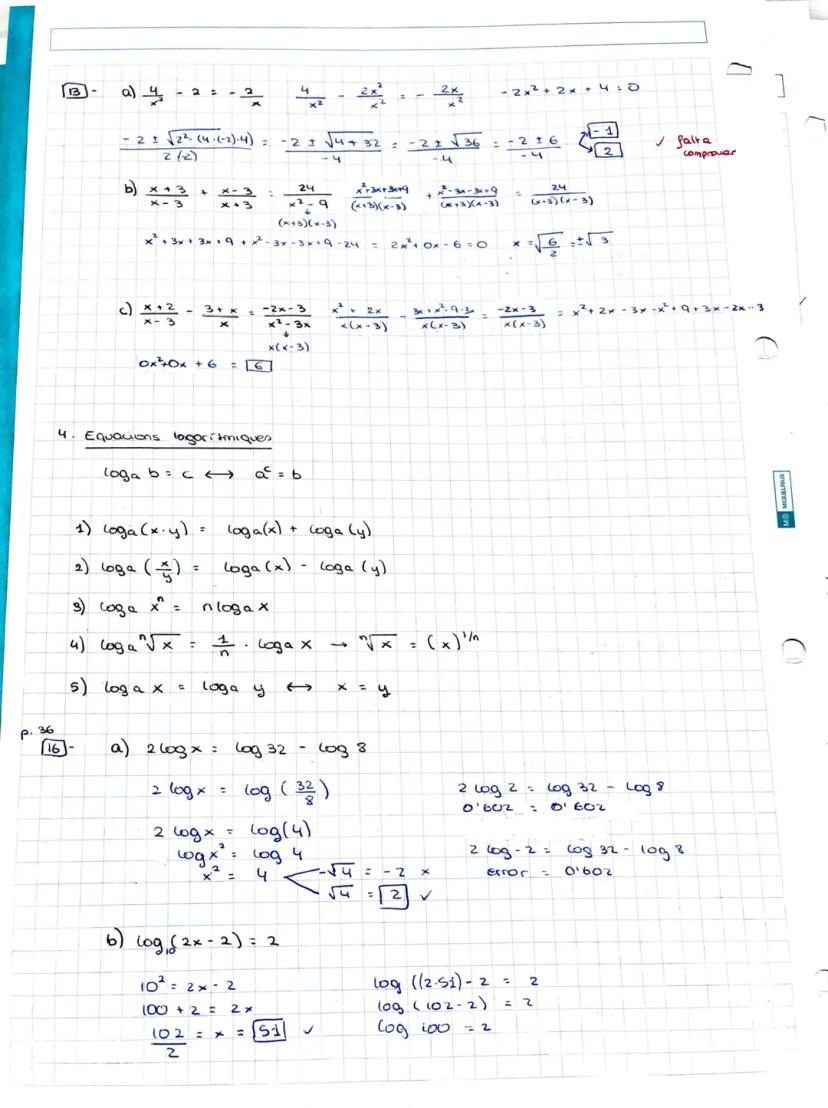 13 - a) 4/x² - 2 = -2/x   4/x² - 2x²/x² = - 2x/x²   -2x² + 2x + 4 = 0
-2 ± √(2² - (4·(-2)·4)) / 2(-2) = -2 ± √(4 + 32) / -4 = -2 ± √36 / -4 = -2 ± 6 / -4 → -1 → 2   ✓ falta comprovar
b) x+3/x-3 + x-3/x+3 = 24/x²-9   x²+3x+3x+9/(x+3)(x-3) + x²-3x-3x+9/(x+3)(x-3) = 24/(x+3)(x-3)
↓
(x+3)(x-3)
x² + 3x + 3x + 9 + x² - 3x - 3x + 9 - 24 = 2x² + 0x - 6 = 0   x = √(6/2) = ±√3
c) x+2/x-3 - 3+x/x = -2x-3/x²-3x   x² + 2x/x(x-3) - 3x+x²-9-3x/x(x-3) = -2x-3/x(x-3) = x² + 2x - 3x - x² + 9 + 3x - 2x - 3
↓
x(x-3)
0x²+0x + 6 = 6
4. Equacions logarítmiques
loga b = c ⟷ a^c = b
1) loga (x·y) = loga(x) + loga (y)
2) loga (x/y) = loga (x) - loga (y)
3) loga xⁿ = n loga x
4) loga ⁿ√x = 1/n · loga x → ⁿ√x = (x)^1/n
5) loga x = loga y ⟷ x = y
p. 36
16 - a) 2 log x = log 32 - log 8
2 log x = log (32/8)
2 log x = log(4)
log x² = log 4
x² = 4 -√4 = -2 x
√4 = 2 ✓
2 log 2 = log 32 - log 8
0'602 = 0'602
2 log -2 = log 32 - log 8
error = 0'602
b) log10(2x - 2) = 2
10² = 2x - 2
100 + 2 = 2x
102/2 = x = 51 ✓
log ((2·51) - 2 = 2
log (102 - 2) = 2
log 100 = 2
MIQUELRIUS